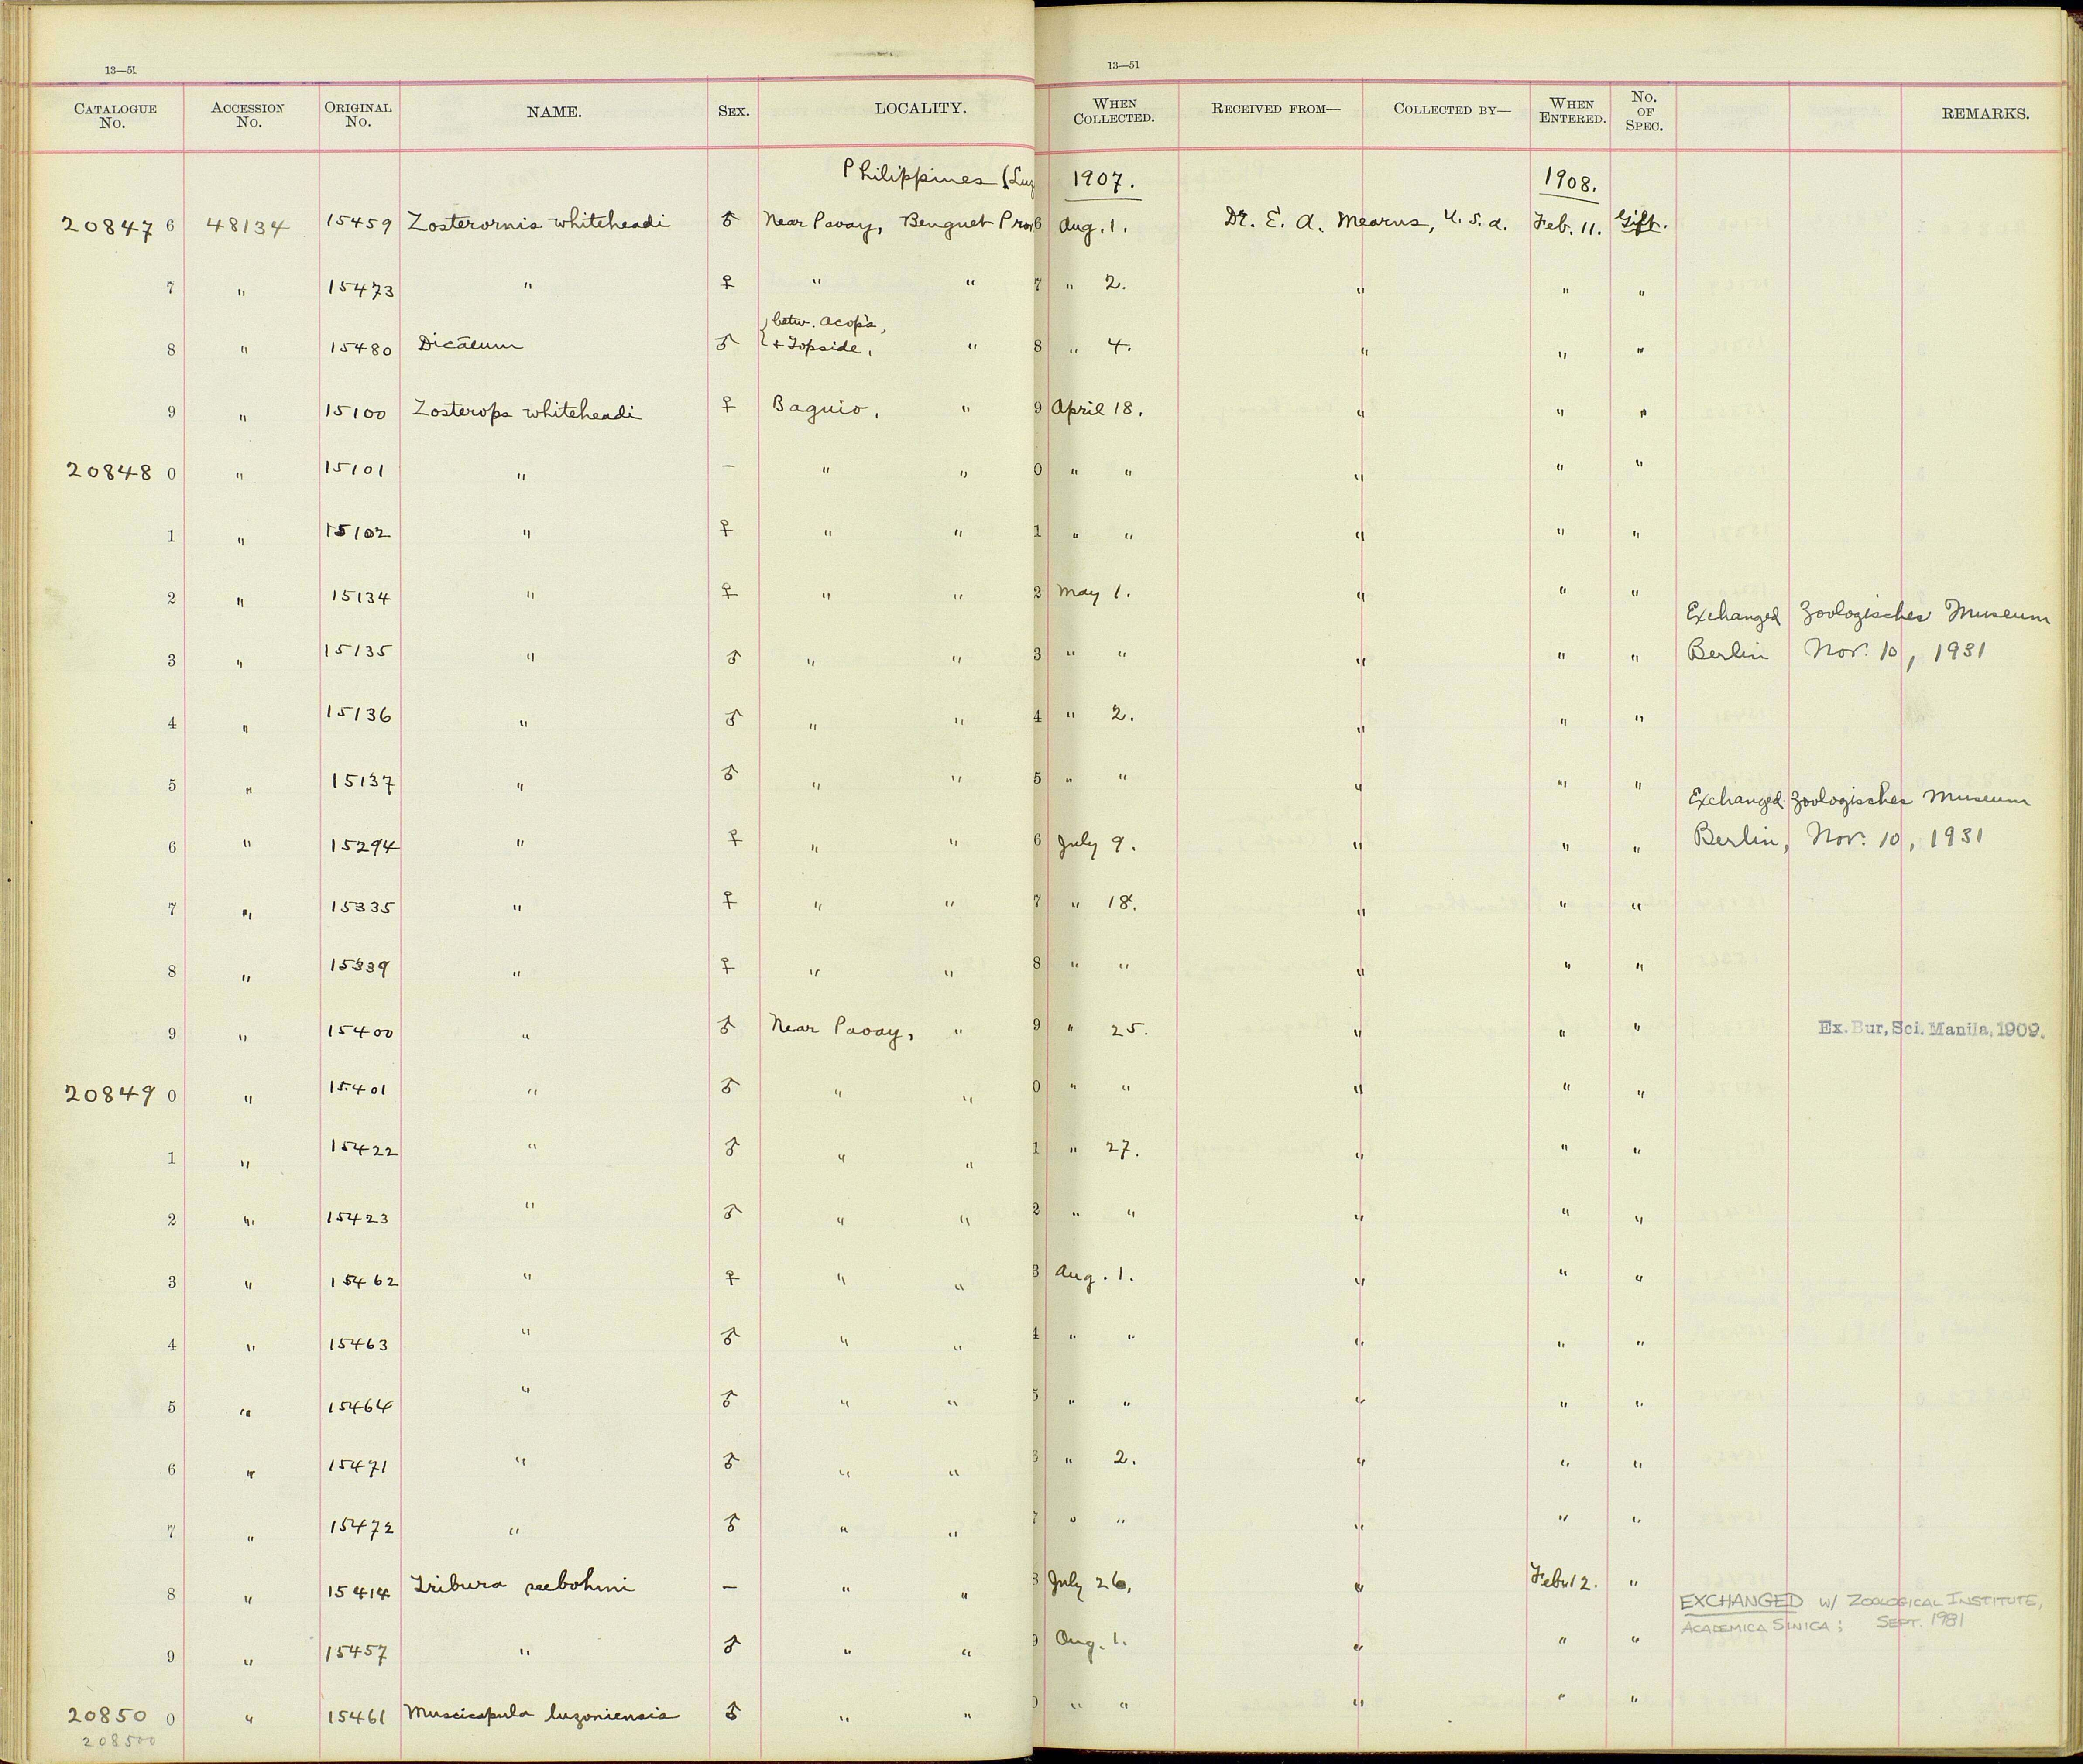 13—51
13—51
CATALOGUE No. ACCESSION No. ORIGINAL No. NAME. SEX. LOCALITY. WHEN COLLECTED. RECEIVED FROM— COLLECTED BY— WHEN ENTERED. No. OF SPEC. REMARKS.
Philippines (Luz 1907. 1908.
20847 6 48134 15459 Zosterornis whiteheadi ♂ Near Paoay, Benguet Prov 6 Aug. 1. Dr. E. A. Mearns, U. S. A. Feb. 11. Gift.
7 " 15473 " ♀ " " 7 " 2. " " "
8 " 15480 Dicaeum ♂ {betw. Acop's, + Topside, " 8 " 4. " " "
9 " 15100 Zosterops whiteheadi ♀ Baguio, " 9 April 18. " " "
20848 0 " 15101 " — " " 0 " " " " "
1 " 15102 " ♀ " " 1 " " " " "
2 " 15134 " ♀ " " 2 May 1. " " "
3 " 15135 " ♂ " " 3 " " " " " Exchanged Zoologisches Museum
Berlin Nov. 10, 1931
4 " 15136 " ♂ " " 4 " 2. " " "
5 " 15137 " ♂ " " 5 " " " " "
6 " 15294 " ♀ " " 6 July 9. " " " Exchanged Zoologisches Museum
Berlin, Nov. 10, 1931
7 " 15335 " ♀ " " 7 " 18. " " "
8 " 15339 " ♀ " " 8 " " " " "
9 " 15400 " ♂ Near Paoay, " 9 " 25. " " " Ex. Bur, Sci. Manila, 1909.
20849 0 " 15401 " ♂ " " 0 " " " " "
1 " 15422 " ♂ " " 1 " 27. " " "
2 " 15423 " ♂ " " 2 " " " " "
3 " 15462 " ♀ " " 3 Aug. 1. " " "
4 " 15463 " ♂ " " 4 " " " " "
5 " 15464 " ♂ " " 5 " " " " "
6 " 15471 " ♂ " " 6 " 2. " " "
7 " 15472 " ♂ " " 7 " " " " "
8 " 15414 Tribura seebohmi — " " 8 July 26, " Feb. 12. " EXCHANGED W/ ZOOLOGICAL INSTITUTE,
ACADEMICA SINICA; SEPT. 1981
9 " 15457 " ♂ " " 9 Aug. 1. " " "
20850 0 " 15461 Muscicapula luzoniensis ♂ " " 0 " " " " "
208500